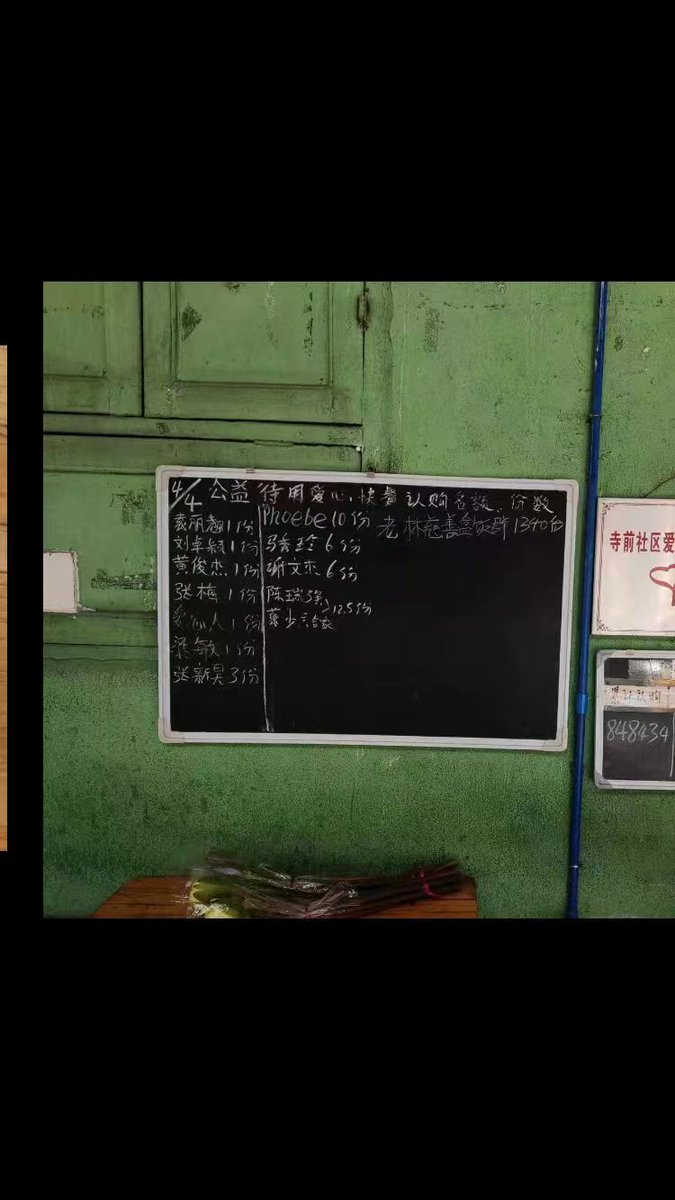 4/4 公益 待用爱心快餐认购名额、份数
袁丽翘 1份
刘卓颖 1份
黄俊杰 1份
张梅 1份
爱心人 1份
梁敏 1份
张新昊 3份
Phoebe 10份
马秀玲 6份
文杰 6份
陈瑞强
12.5份
老林慈善盒饭群 1340份
寺前社区爱
累计认购
848434